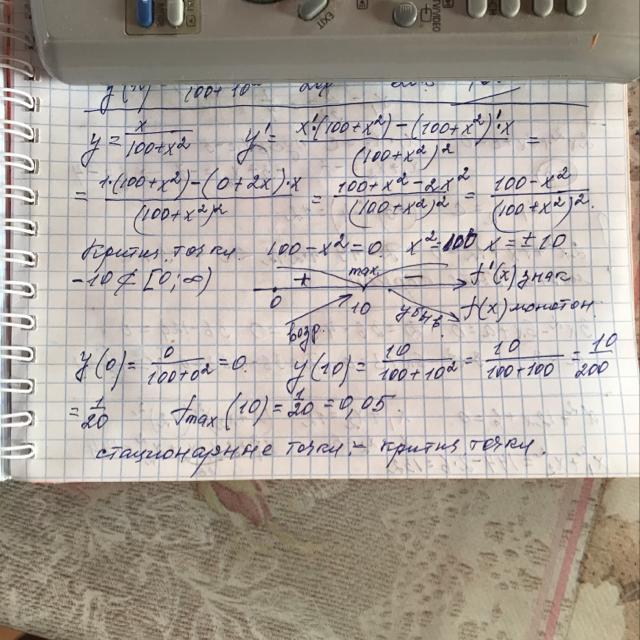 EXIT
y = x/(100+x²) y' = (x'·(100+x²) − (100+x²)'·x)/(100+x²)² =
= (1·(100+x²) − (0+2x)·x)/(100+x²)² = (100+x²−2x²)/(100+x²)² = (100−x²)/(100+x²)².
Критич. точки. 100−x²=0. x²=100 x=±10.
−10 ⊄ [0;∞) + max − f'(x) знак
0 10 f(x) монотон.
возр. убыв
y(0) = 0/(100+0²) = 0. y(10) = 10/(100+10²) = 10/(100+100) = 10/200
= 1/20 fmax(10) = 1/20 = 0,05.
стационарные точки – критич точки.